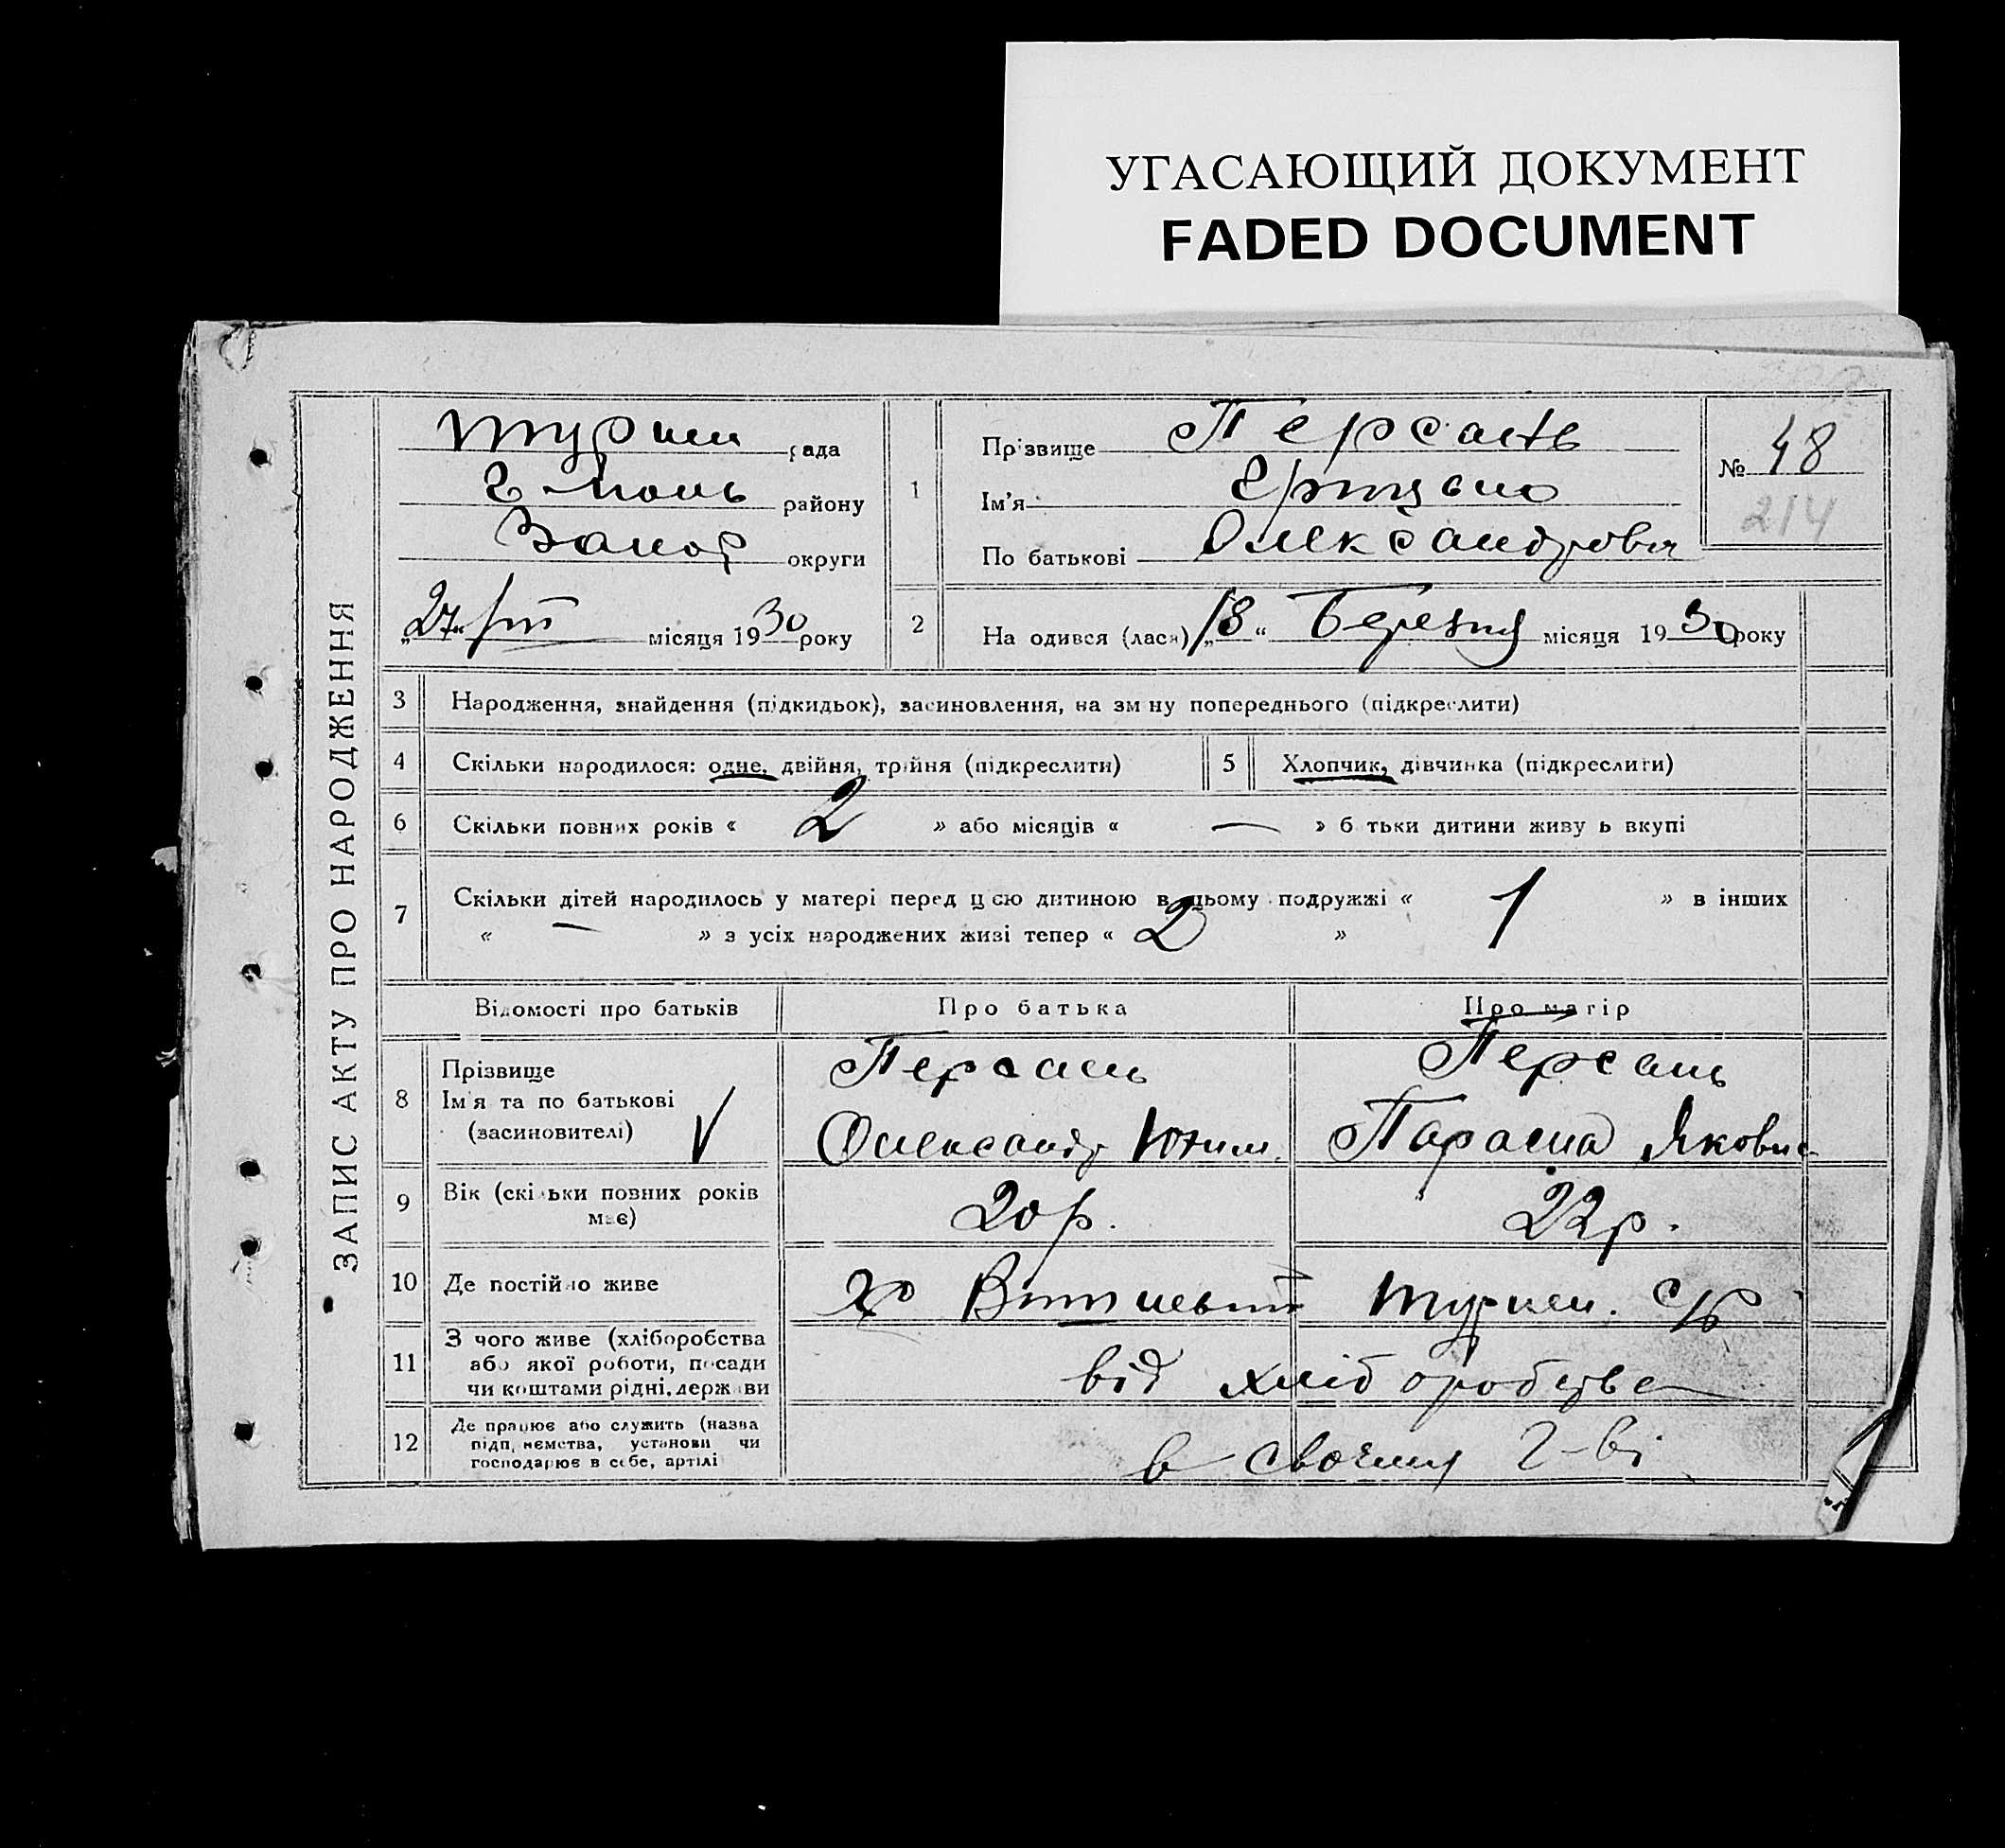 УГАСАЮЩИЙ ДОКУМЕНТ
FADED DOCUMENT
ЗАПИС АКТУ ПРО НАРОДЖЕННЯ
рада
району
Запор округи
„27“ місяця 1930 року
1
Прізвище Персань
Ім'я
По батькові Олександрович
№ 48
214
2 На одився (лася) „18“ Березня місяця 1930 року
3 Народження, знайдення (підкидьок), засиновлення, на зм ну попереднього (підкреслити)
4 Скільки народилося: одне, двійня, трійня (підкреслити) 5 Хлопчик, дівчинка (підкреслити)
6 Скільки повних років « 2 » або місяців « — » б тьки дитини живу ь вкупі
7 Скільки дітей народилось у матері перед цією дитиною в цьому подружжі « 1 » в інших
« — » з усіх народжених живі тепер « 2 »
Відомості про батьків Про батька Про матір
8 Прізвище
Ім'я та по батькові
(засиновителі) V
Персань
Олександр
Персань
Параска Яковна
9 Вік (скільки повних років
має) 20 р. 22 р.
10 Де постійно живе с/р
11 З чого живе (хліборобства
або якої роботи, посади
чи коштами рідні, держави
від хліборобства
12 Де працює або служить (назва
підп, иємства, установи чи
господарює в себе, артілі
в своему г-ві